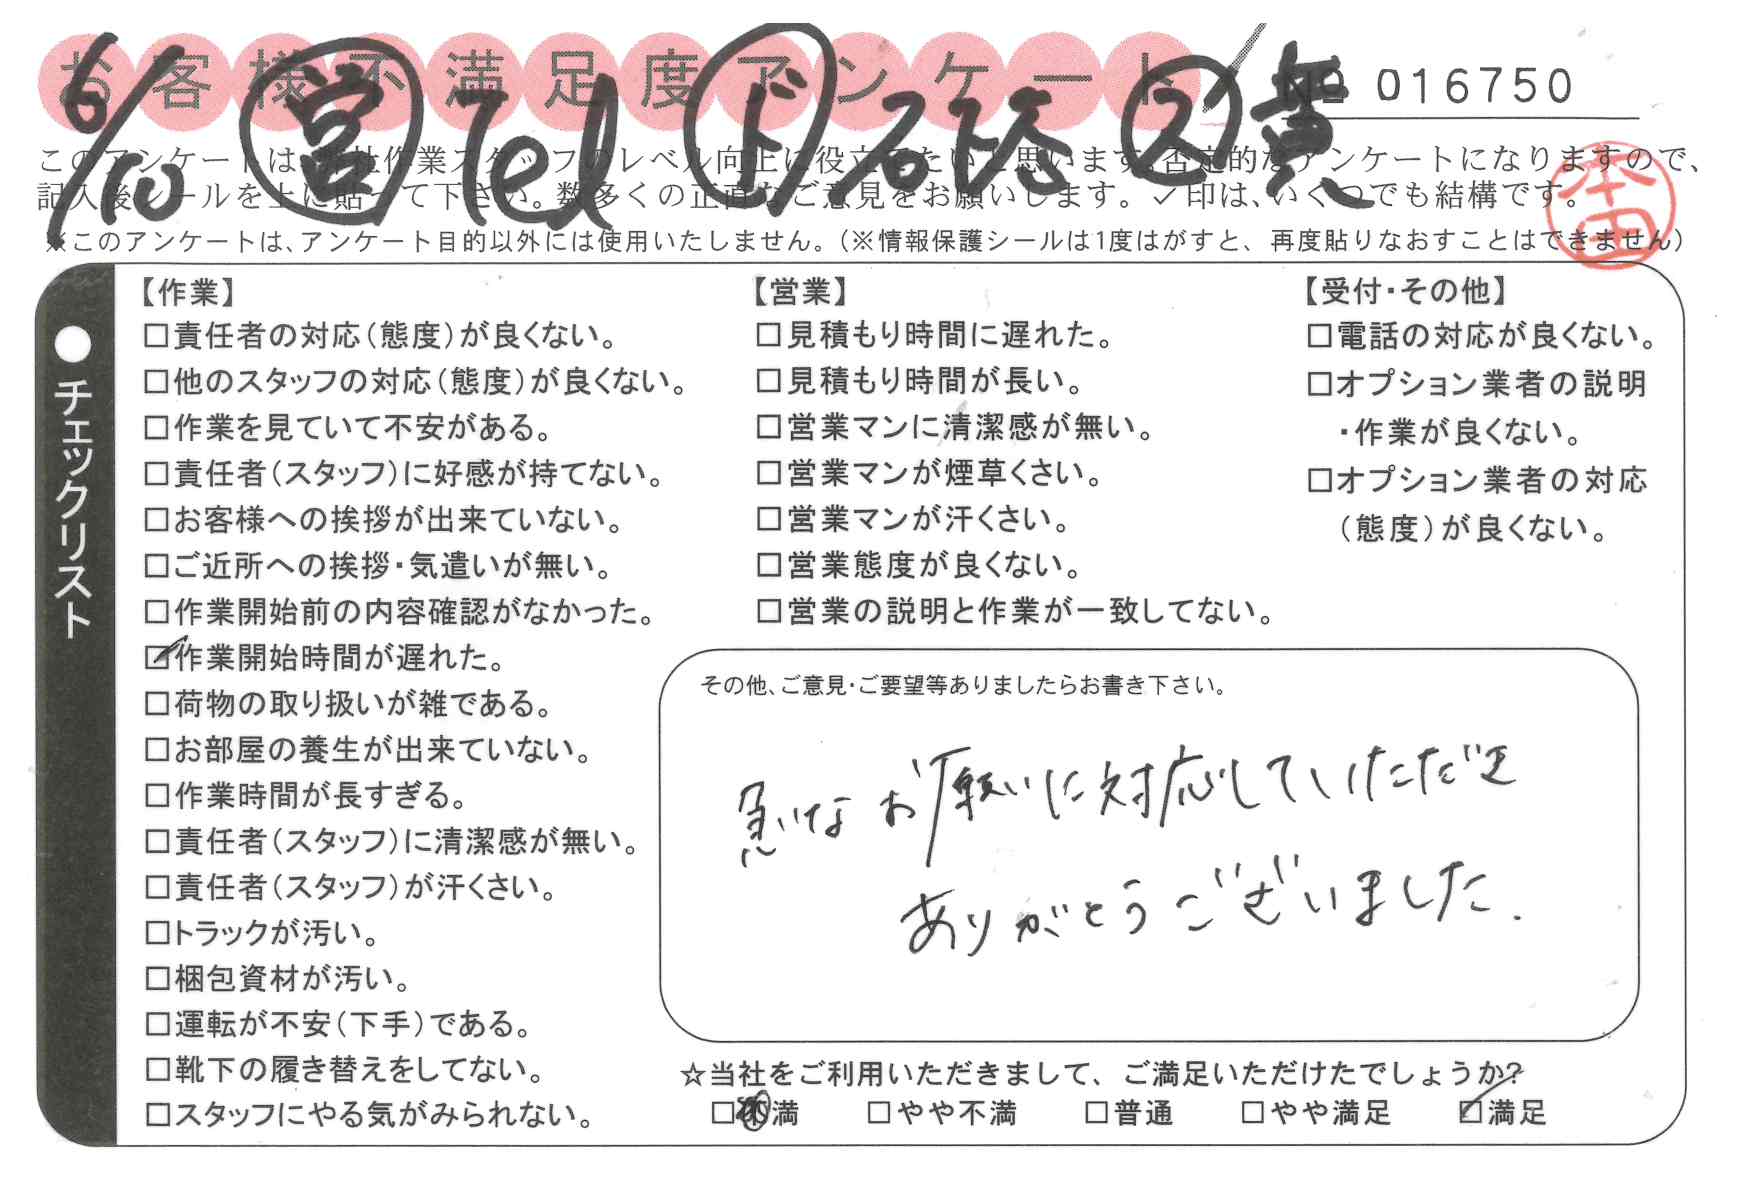 お客様不満足度アンケート
№ 016750
6/10 営 Tel ド 石
このアンケートは、当社作業スタッフのレベル向上に役立てたいと思います。否定的なアンケートになりますので、
記入後シールを上に貼って下さい。数多くの正直なご意見をお願いします。✓印は、いくつでも結構です。
※このアンケートは、アンケート目的以外には使用いたしません。（※情報保護シールは1度はがすと、再度貼りなおすことはできません）
●チェックリスト
【作業】
□責任者の対応（態度）が良くない。
□他のスタッフの対応（態度）が良くない。
□作業を見ていて不安がある。
□責任者（スタッフ）に好感が持てない。
□お客様への挨拶が出来ていない。
□ご近所への挨拶・気遣いが無い。
□作業開始前の内容確認がなかった。
☑作業開始時間が遅れた。
□荷物の取り扱いが雑である。
□お部屋の養生が出来ていない。
□作業時間が長すぎる。
□責任者（スタッフ）に清潔感が無い。
□責任者（スタッフ）が汗くさい。
□トラックが汚い。
□梱包資材が汚い。
□運転が不安（下手）である。
□靴下の履き替えをしてない。
□スタッフにやる気がみられない。
【営業】
□見積もり時間に遅れた。
□見積もり時間が長い。
□営業マンに清潔感が無い。
□営業マンが煙草くさい。
□営業マンが汗くさい。
□営業態度が良くない。
□営業の説明と作業が一致してない。
【受付・その他】
□電話の対応が良くない。
□オプション業者の説明
・作業が良くない。
□オプション業者の対応
（態度）が良くない。
その他、ご意見・ご要望等ありましたらお書き下さい。
急な お願いに対応していただき
ありがとうございました.
☆当社をご利用いただきまして、ご満足いただけたでしょうか?
□不満 □やや不満 □普通 □やや満足 ☑満足